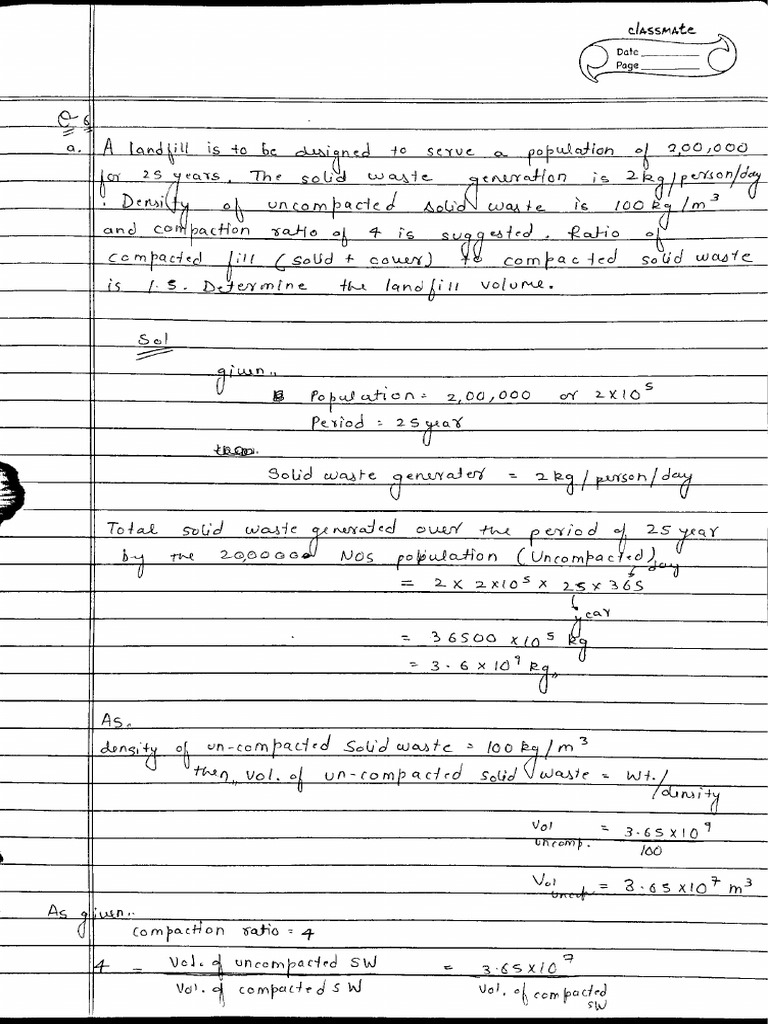 classmate
Date
Page
Q 6
a. A landfill is to be designed to serve a population of 2,00,000
for 25 years. The solid waste generation is 2kg/person/day
. Density of uncompacted solid waste is 100 kg/m³
and compaction ratio of 4 is suggested. Ratio of
compacted fill (solid + cover) to compacted solid waste
is 1.5. Determine the landfill volume.
Sol
given..
Population = 2,00,000 or 2×10⁵
Period = 25 year
Solid waste generated = 2kg/person/day
Total solid waste generated over the period of 25 year
by the 20,00000 NOS population (Uncompacted)
= 2 × 2×10⁵ × 25 × 365
day
year
= 36500 ×10⁵ kg
= 3.6 × 10⁹ kg
As.
density of un-compacted Solid waste = 100 kg/m³
then, vol. of un-compacted solid waste = wt./
density
Vol uncomp. = 3.65×10⁹
100
Vol uncop = 3.65×10⁷ m³
As given..
compaction ratio = 4
4 = Vol. of uncompacted SW = 3.65×10⁷
Vol. of compacted SW Vol. of compacted
SW